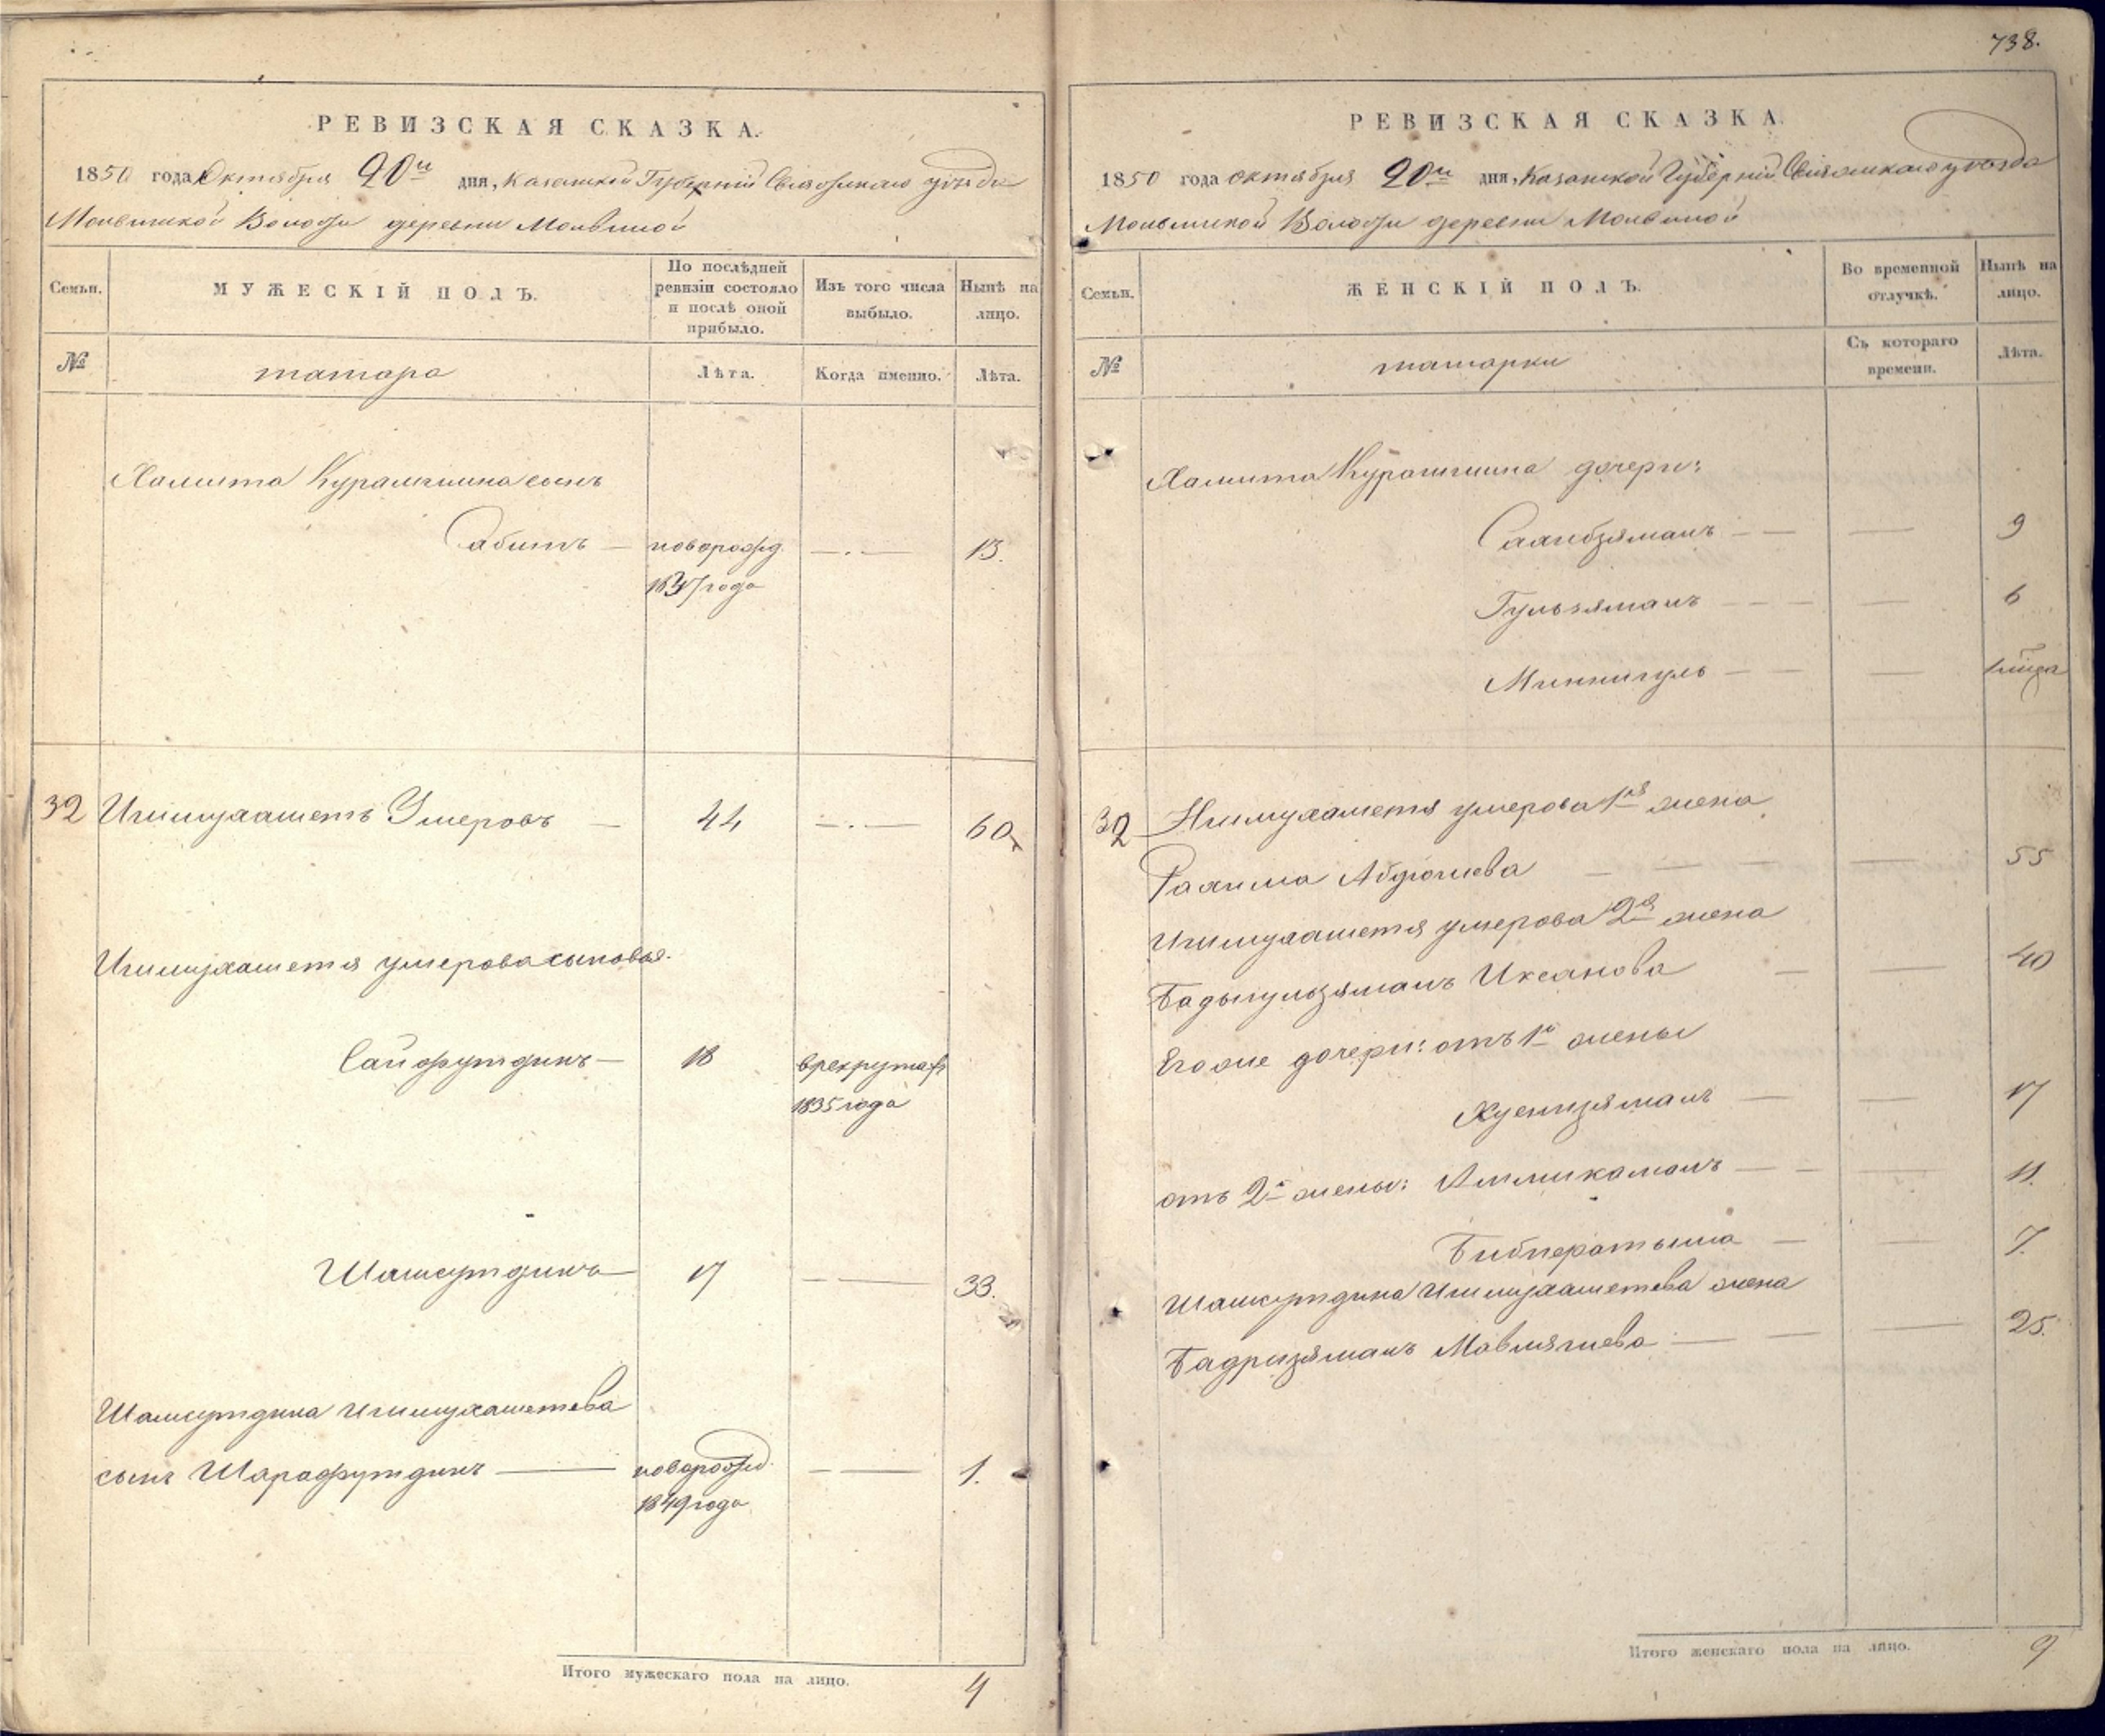 РЕВИЗСКАЯ СКАЗКА.
1850 года Октября 20го дня, Казанской Губерніи Свіяжскаго уѣзда
Молвинской Волости деревни Молвиной
Семьи.
МУЖЕСКІЙ ПОЛЪ.
По послѣдней ревизіи состояло и послѣ оной прибыло.
Изъ того числа выбыло.
Нынѣ на лицо.
№
татара
Лѣта.
Когда именно.
Лѣта.
Хамита Курамшина сынъ
Сабитъ — новорожд. — 13.
1837 года
32 Игимухаметъ Умеровъ — 44 — 60
Игимухаметя умерова сыновья.
Сайфутдинъ — 18 в рекрутахъ
1835 года
Шамсутдинъ — 17 — 33.
Шамсутдина Игимухаметева
сынъ Шарафутдинъ — новорожд. — 1.
1849 года
Итого мужескаго пола на лицо. 4
738.
РЕВИЗСКАЯ СКАЗКА.
1850 года октября 20го дня, Казанской Губерніи Свіяжскаго уѣзда
Молвинской Волости деревни Молвиной
Семьи.
ЖЕНСКІЙ ПОЛЪ.
Во временной отлучкѣ.
Нынѣ на лицо.
№
татарки
Съ котораго времени.
Лѣта.
Хамита Курамшина дочери:
Сахибзямалъ — — 9
Гульзямалъ — — 6
Миннигуль — —
32 Игимухаметя умерова 1я жена
Рахима Абдюшева — — 55
Игимухаметя умерова 2я жена
Бадыгульзямалъ Иксанова — — 40
Его же дочери: отъ 1й жены
Хуснизямалъ — — 17
отъ 2й жены: Аммикамалъ — — 11.
Бибператыма — — 7.
Шамсутдина Игимухаметева жена
Бадризямалъ Мавлягиева — — 25.
Итого женскаго пола на лицо. 9